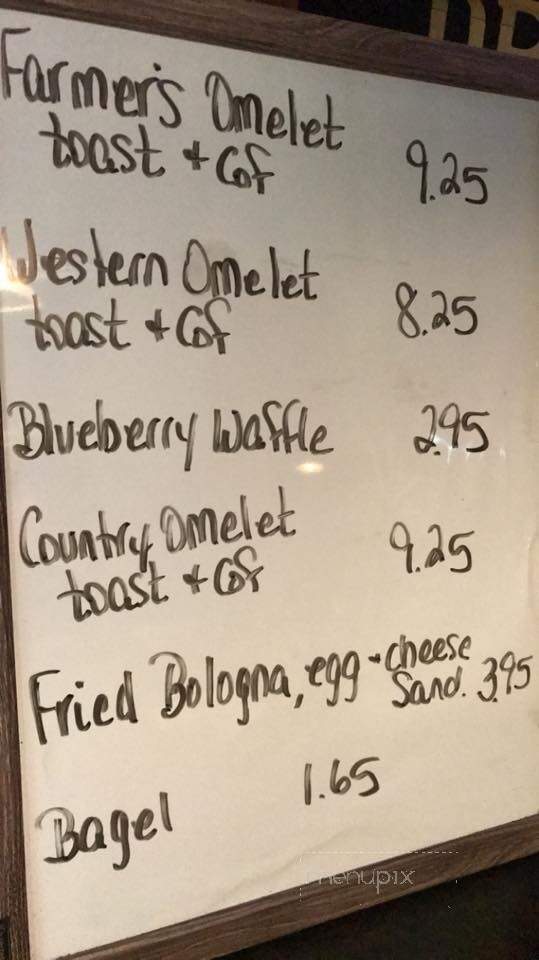 Farmer's Omelet
toast + Cof 9.25
Western Omelet
toast + Cof 8.25
Blueberry Waffle 2.95
Country Omelet
toast + Cof 9.25
Fried Bologna, egg + cheese
Sand. 3.95
Bagel 1.65
menupix